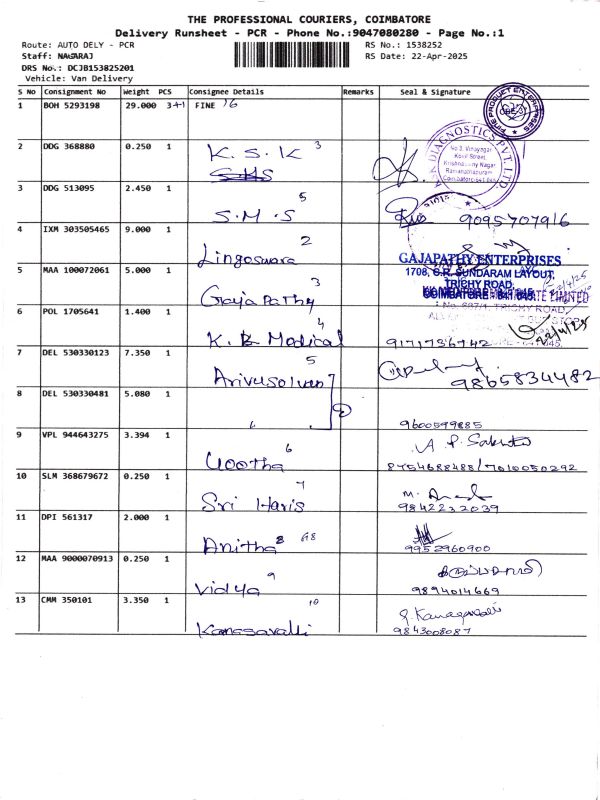 THE PROFESSIONAL COURIERS, COIMBATORE
Delivery Runsheet - PCR - Phone No.:9047080280 - Page No.:1
Route: AUTO DELY - PCR
RS No.: 1538252
Staff: NAGARAJ
RS Date: 22-Apr-2025
DRS No.: DCJB153825201
Vehicle: Van Delivery
S No Consignment No Weight PCS Consignee Details Remarks Seal & Signature
1 BOH 5293198 29.000 3+1 FINE 16
FINE PRODUCT ENTERPRISES
2 DDG 368880 0.250 1 K. S. K 3
DIAGNOSTICS PVT. LTD.
No.3, Vinayagar
Kovil Street,
Krishnasamy Nagar
Ramanathapuram
Coimbatore-641 045
3 DDG 513095 2.450 1 S. M. S 5
9095707916
4 IXM 303505465 9.000 1 Lingoswara 2
GAJAPATHY ENTERPRISES
1708, S.R. SUNDARAM LAYOUT,
TRICHY ROAD,
COIMBATORE - 641 045.
5 MAA 100072061 5.000 1 Gajapathy 3
PRIVATE LIMITED
TRICHY ROAD,
22/4/25
6 POL 1705641 1.400 1 K. B Medical 4
9171736742
7 DEL 530330123 7.350 1 Arivusolvan 5
9865834482
8 DEL 530330481 5.080 1
9600599885
9 VPL 944643275 3.394 1 Gootha 6
8754688488/7010050292
10 SLM 368679672 0.250 1 Sri Haris 7
9842232039
11 DPI 561317 2.000 1 Anitha 8
9952960900
12 MAA 9000070913 0.250 1 Vidya 9
9894014669
13 CMM 350101 3.350 1 Kanagavalli 10
9843008087